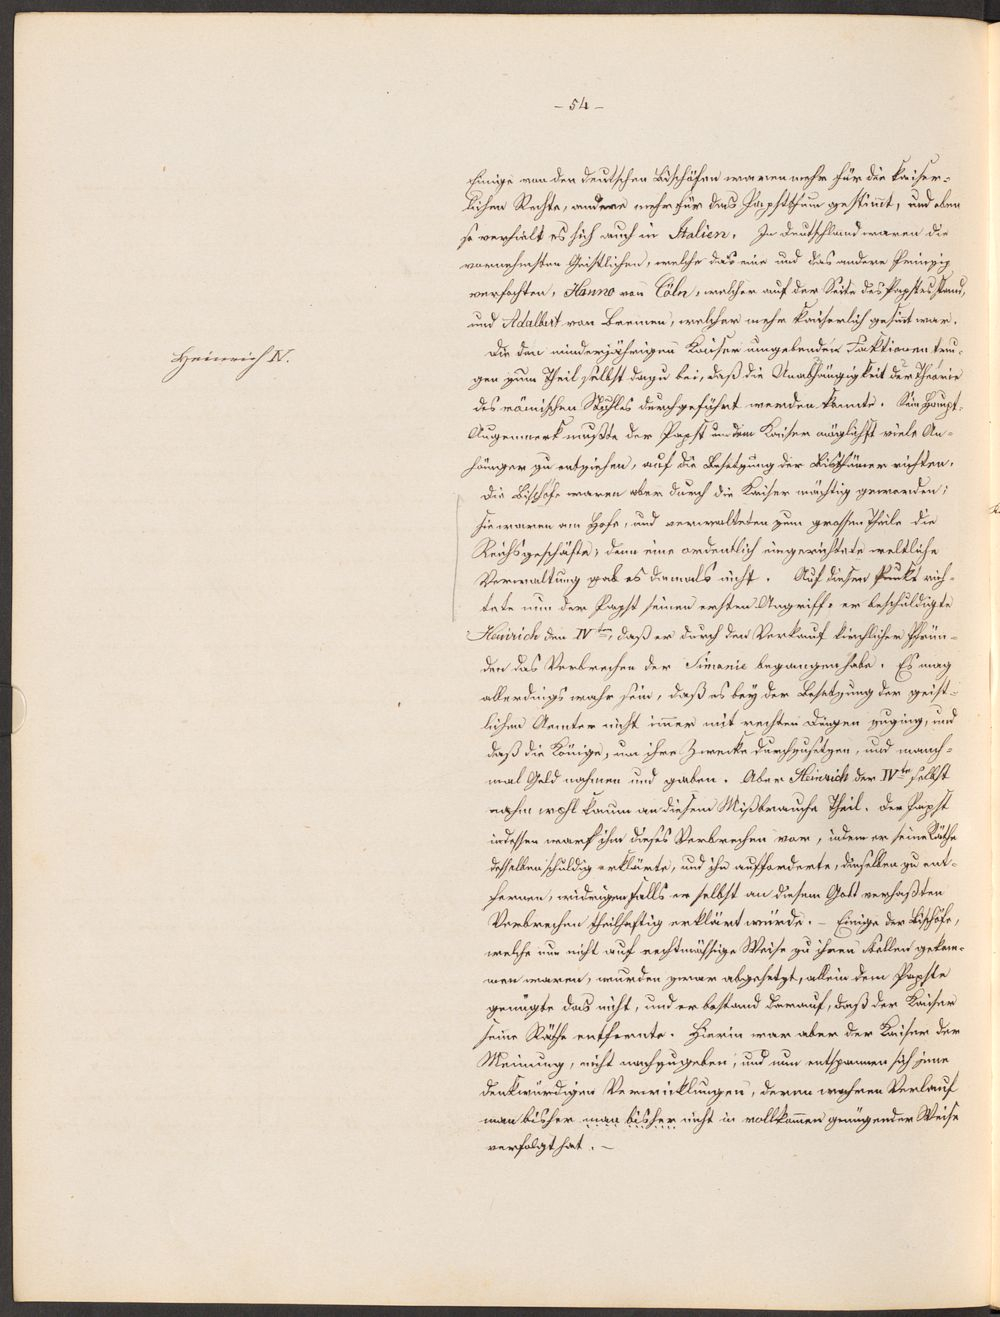 - 54 -
Einige von den deutschen Bischöfen waren mehr für die kaiser-
lichen Rechte, andere mehr für das Papstthum gestimt, und eben
so verhielt es sich auch in Italien. In Deutschland waren die
vornehmsten Geistlichen, welche das eine und das andere Prinzip
verfochten, Hanno von Cöln, welcher auf der Seite des Papstes stand,
und Adalbert von Bremen, welcher mehr kaiserlich gesint war.
Heinrich IV.
Die den minderjährigen Kaiser umgebenden Faktionen tru-
gen zum Theil selbst dazu bei, daß die Unabhängigkeit der Theorie
des römischen Stuhles durchgeführt werden konnte. Sein Haupt-
Augenmerk mußte der Papst um dem Kaiser möglichst viele An-
hänger zu entziehen, auf die Besetzung der Bisthümer richten.
Die Bischöfe waren aber durch die Kaiser mächtig geworden;
sie waren am Hofe, und verwalteten zum grossen Theile die
Reichsgeschäfte; denn eine ordentlich eingerichtete weltliche
Verwaltung gab es damals nicht. Auf diesen Punkt rich-
tete nun der Papst seinen ersten Angriff: er beschuldigte
Heinrich den IVten, daß er durch den Verkauf kirchlicher Pfrün-
den das Verbrechen der Simonie begangen habe. Es mag
allerdings wahr sein, daß es bey der Besetzung der geist-
lichen Aemter nicht imer mit rechten Dingen zuging, und
daß die Könige, um ihre Zwecke durchzusetzen, und manch-
mal Geld nahmen und gaben. Aber Heinrich der IVte selbst
nahm wohl kaum an diesem Mißbrauche Theil. Der Papst
indessen warf ihm dieses Verbrechen vor, indem er seine Räthe
desselben schuldig erklärte, und ihn aufforderte, dieselben zu ent-
fernen, widrigenfalls er selbst an diesem Gott verhaßten
Verbrechen theilhaftig erklärt würde. - Einige der Bischöfe,
welche nun nicht auf rechtmässige Weise zu ihren Stellen gekom-
men waren, wurden zwar abgesetzt, allein dem Papste
genügte das nicht, und er bestand darauf, daß der Kaiser
seine Räthe entfernte. Hierin war aber der Kaiser der
Meinung, nicht nachzugeben; und nun entspannen sich jene
denkwürdigen Verwicklungen, deren wahren Verlauf
man bisher man bisher nicht in vollkomen genügender Weise
verfolgt hat. -